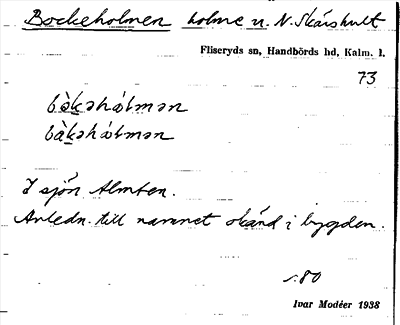 Bockeholmen holme u. N. Skärshult
Fliseryds sn, Handbörds hd, Kalm. l.
73
bàkəhólmən
bàkəhólmən
I sjön Almten.
Anledn. till namnet okänd i bygden.
s. 80
Ivar Modéer 1938